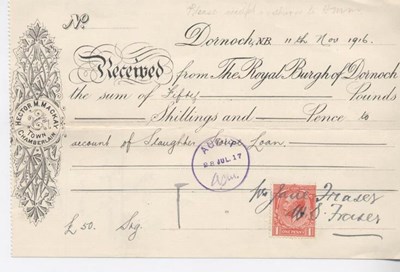 Please receipt &
No.
Dornoch, N.B. 11th Nov 1916.
Received from The Royal Burgh of Dornoch
the sum of Fifty Pounds
Shillings and Pence to
account of Slaughter House Loan.
HECTOR M. MACKAY
TOWN CHAMBERLAIN
AUDIT
28 JUL. 17
per Jane Fraser
W S. Fraser
£ 50. Stg.
ONE PENNY